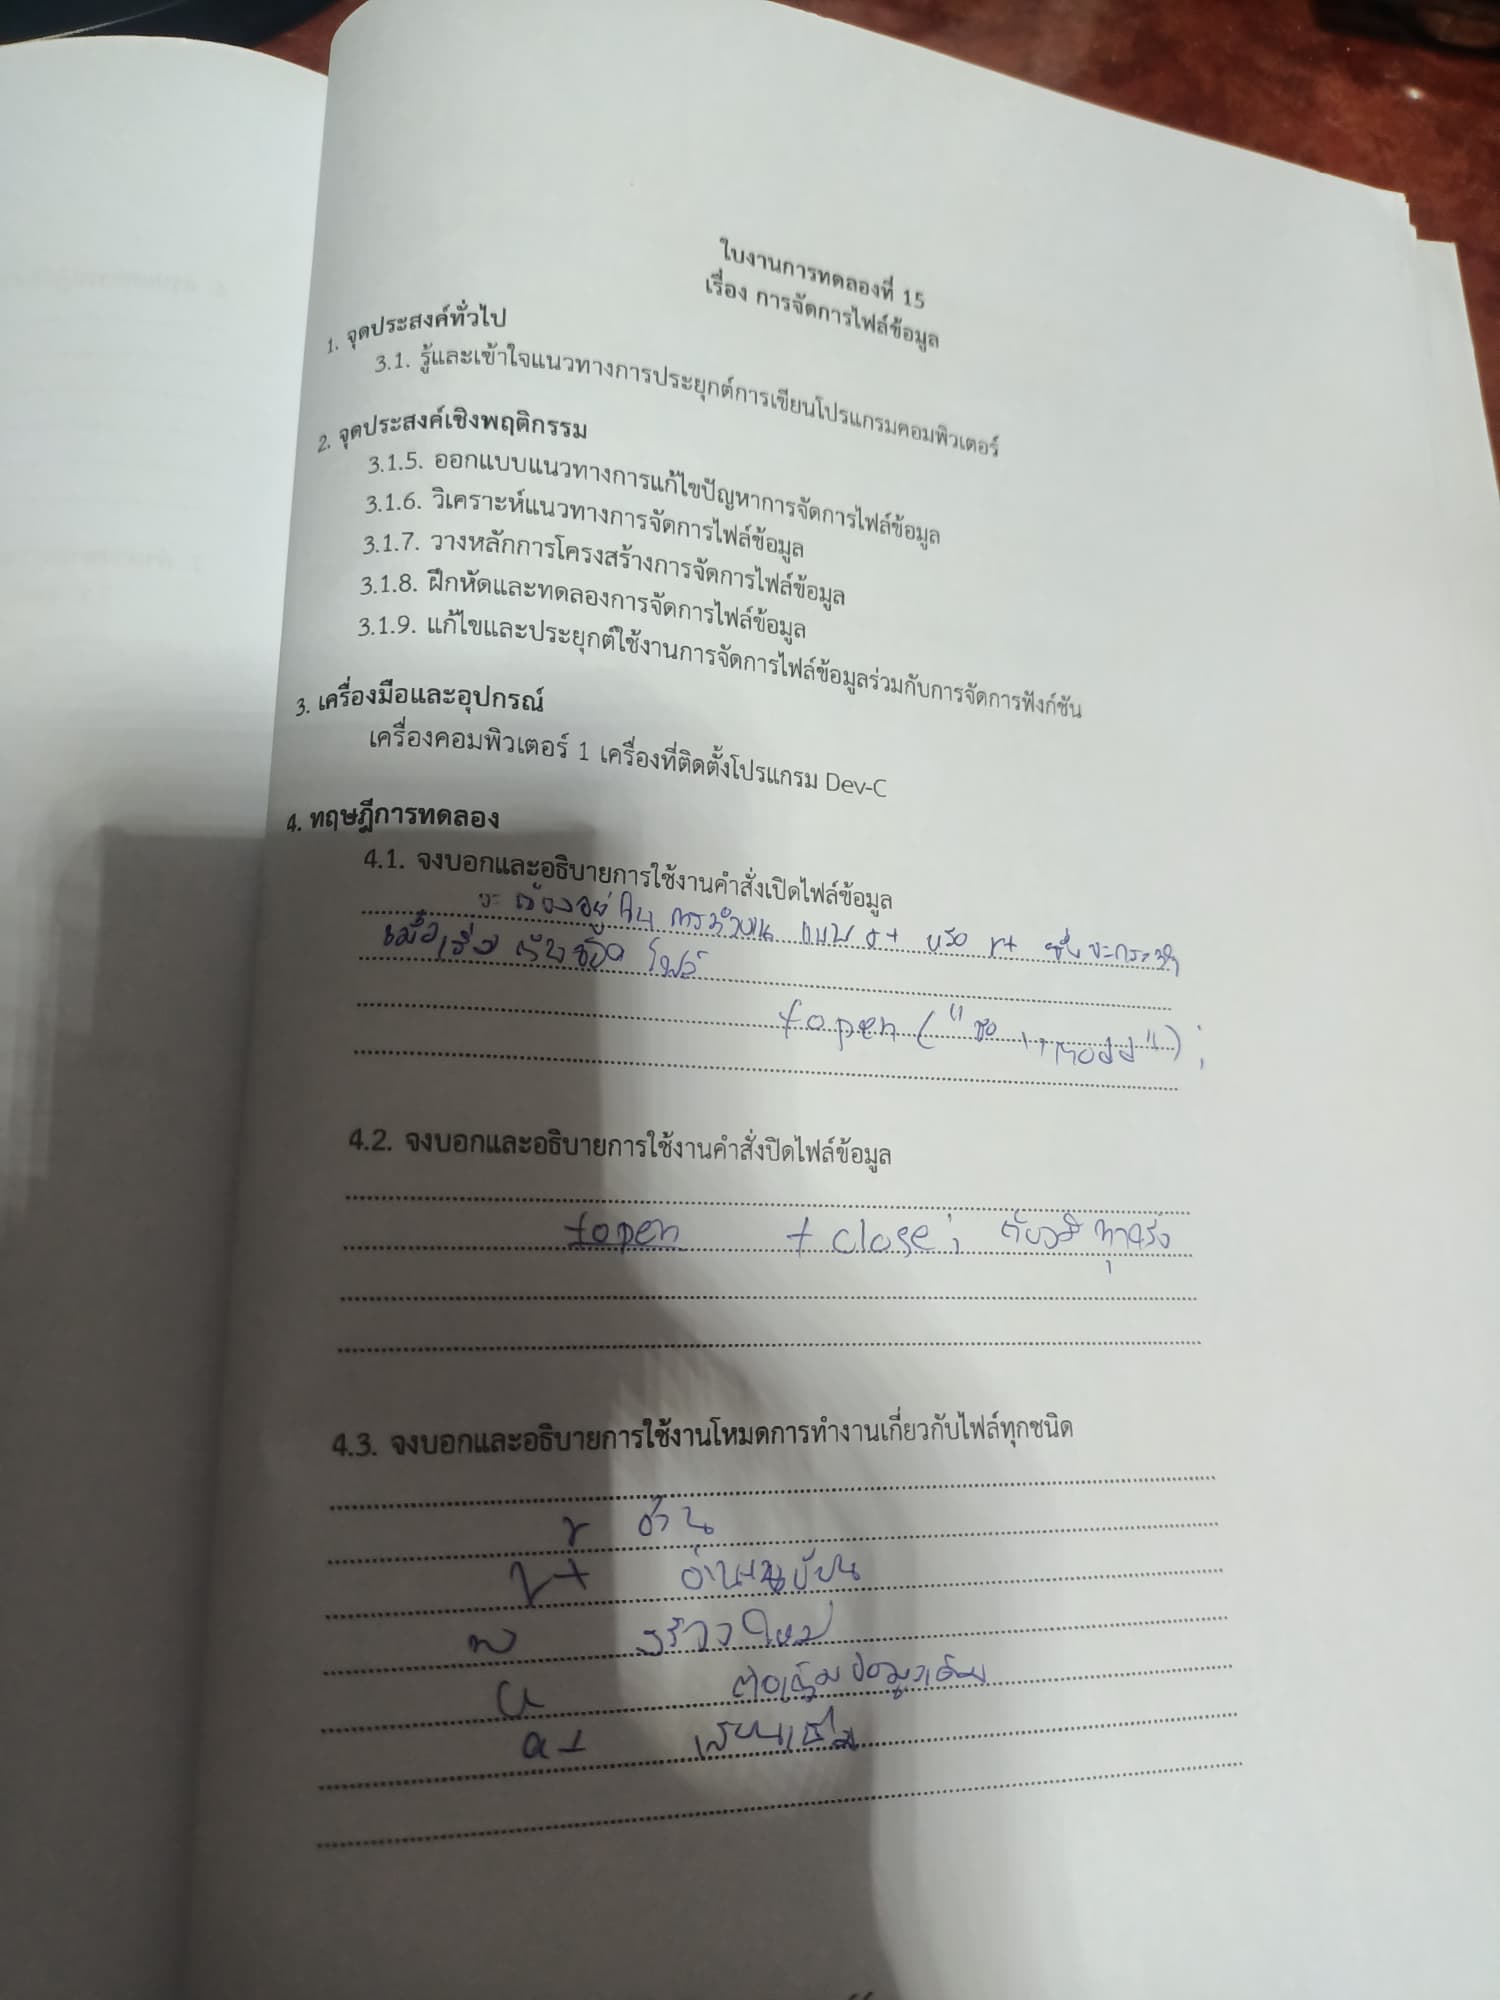 ใบงานการทดลองที่ 15
เรื่อง การจัดการไฟล์ข้อมูล
1. จุดประสงค์ทั่วไป
3.1. รู้และเข้าใจแนวทางการประยุกต์การเขียนโปรแกรมคอมพิวเตอร์
2. จุดประสงค์เชิงพฤติกรรม
3.1.5. ออกแบบแนวทางการแก้ไขปัญหาการจัดการไฟล์ข้อมูล
3.1.6. วิเคราะห์แนวทางการจัดการไฟล์ข้อมูล
3.1.7. วางหลักการโครงสร้างการจัดการไฟล์ข้อมูล
3.1.8. ฝึกหัดและทดลองการจัดการไฟล์ข้อมูล
3.1.9. แก้ไขและประยุกต์ใช้งานการจัดการไฟล์ข้อมูลร่วมกับการจัดการฟังก์ชัน
3. เครื่องมือและอุปกรณ์
เครื่องคอมพิวเตอร์ 1 เครื่องที่ติดตั้งโปรแกรม Dev-C
4. ทฤษฎีการทดลอง
4.1. จงบอกและอธิบายการใช้งานคำสั่งเปิดไฟล์ข้อมูล
จะต้องอยู่ใน การทำงาน แบบ a+ หรือ r+ ซึ่งจะกระทำ
เมื่อเริ่มต้น ไฟล์
fopen ("ชื่อ
4.2. จงบอกและอธิบายการใช้งานคำสั่งปิดไฟล์ข้อมูล
fopen fclose; ต้องมีทุกครั้ง
4.3. จงบอกและอธิบายการใช้งานโหมดการทำงานเกี่ยวกับไฟล์ทุกชนิด
r อ่าน
r+ อ่าน
w สร้างใหม่
a ข้อมูลเดิม
a+